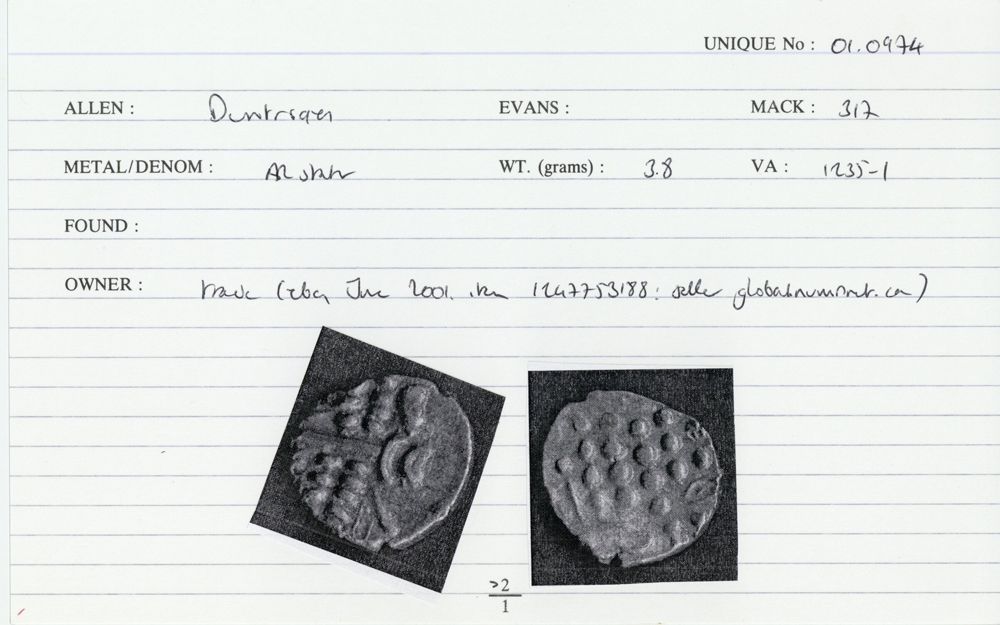 UNIQUE No : 01.0974
ALLEN : Durotrigen EVANS : MACK : 317
METAL/DENOM : AR stater WT. (grams) : 3.8 VA : 1235-1
FOUND :
OWNER : trade (ebay June 2001. item 1247753188: seller globalnumismat.com)
>2
1